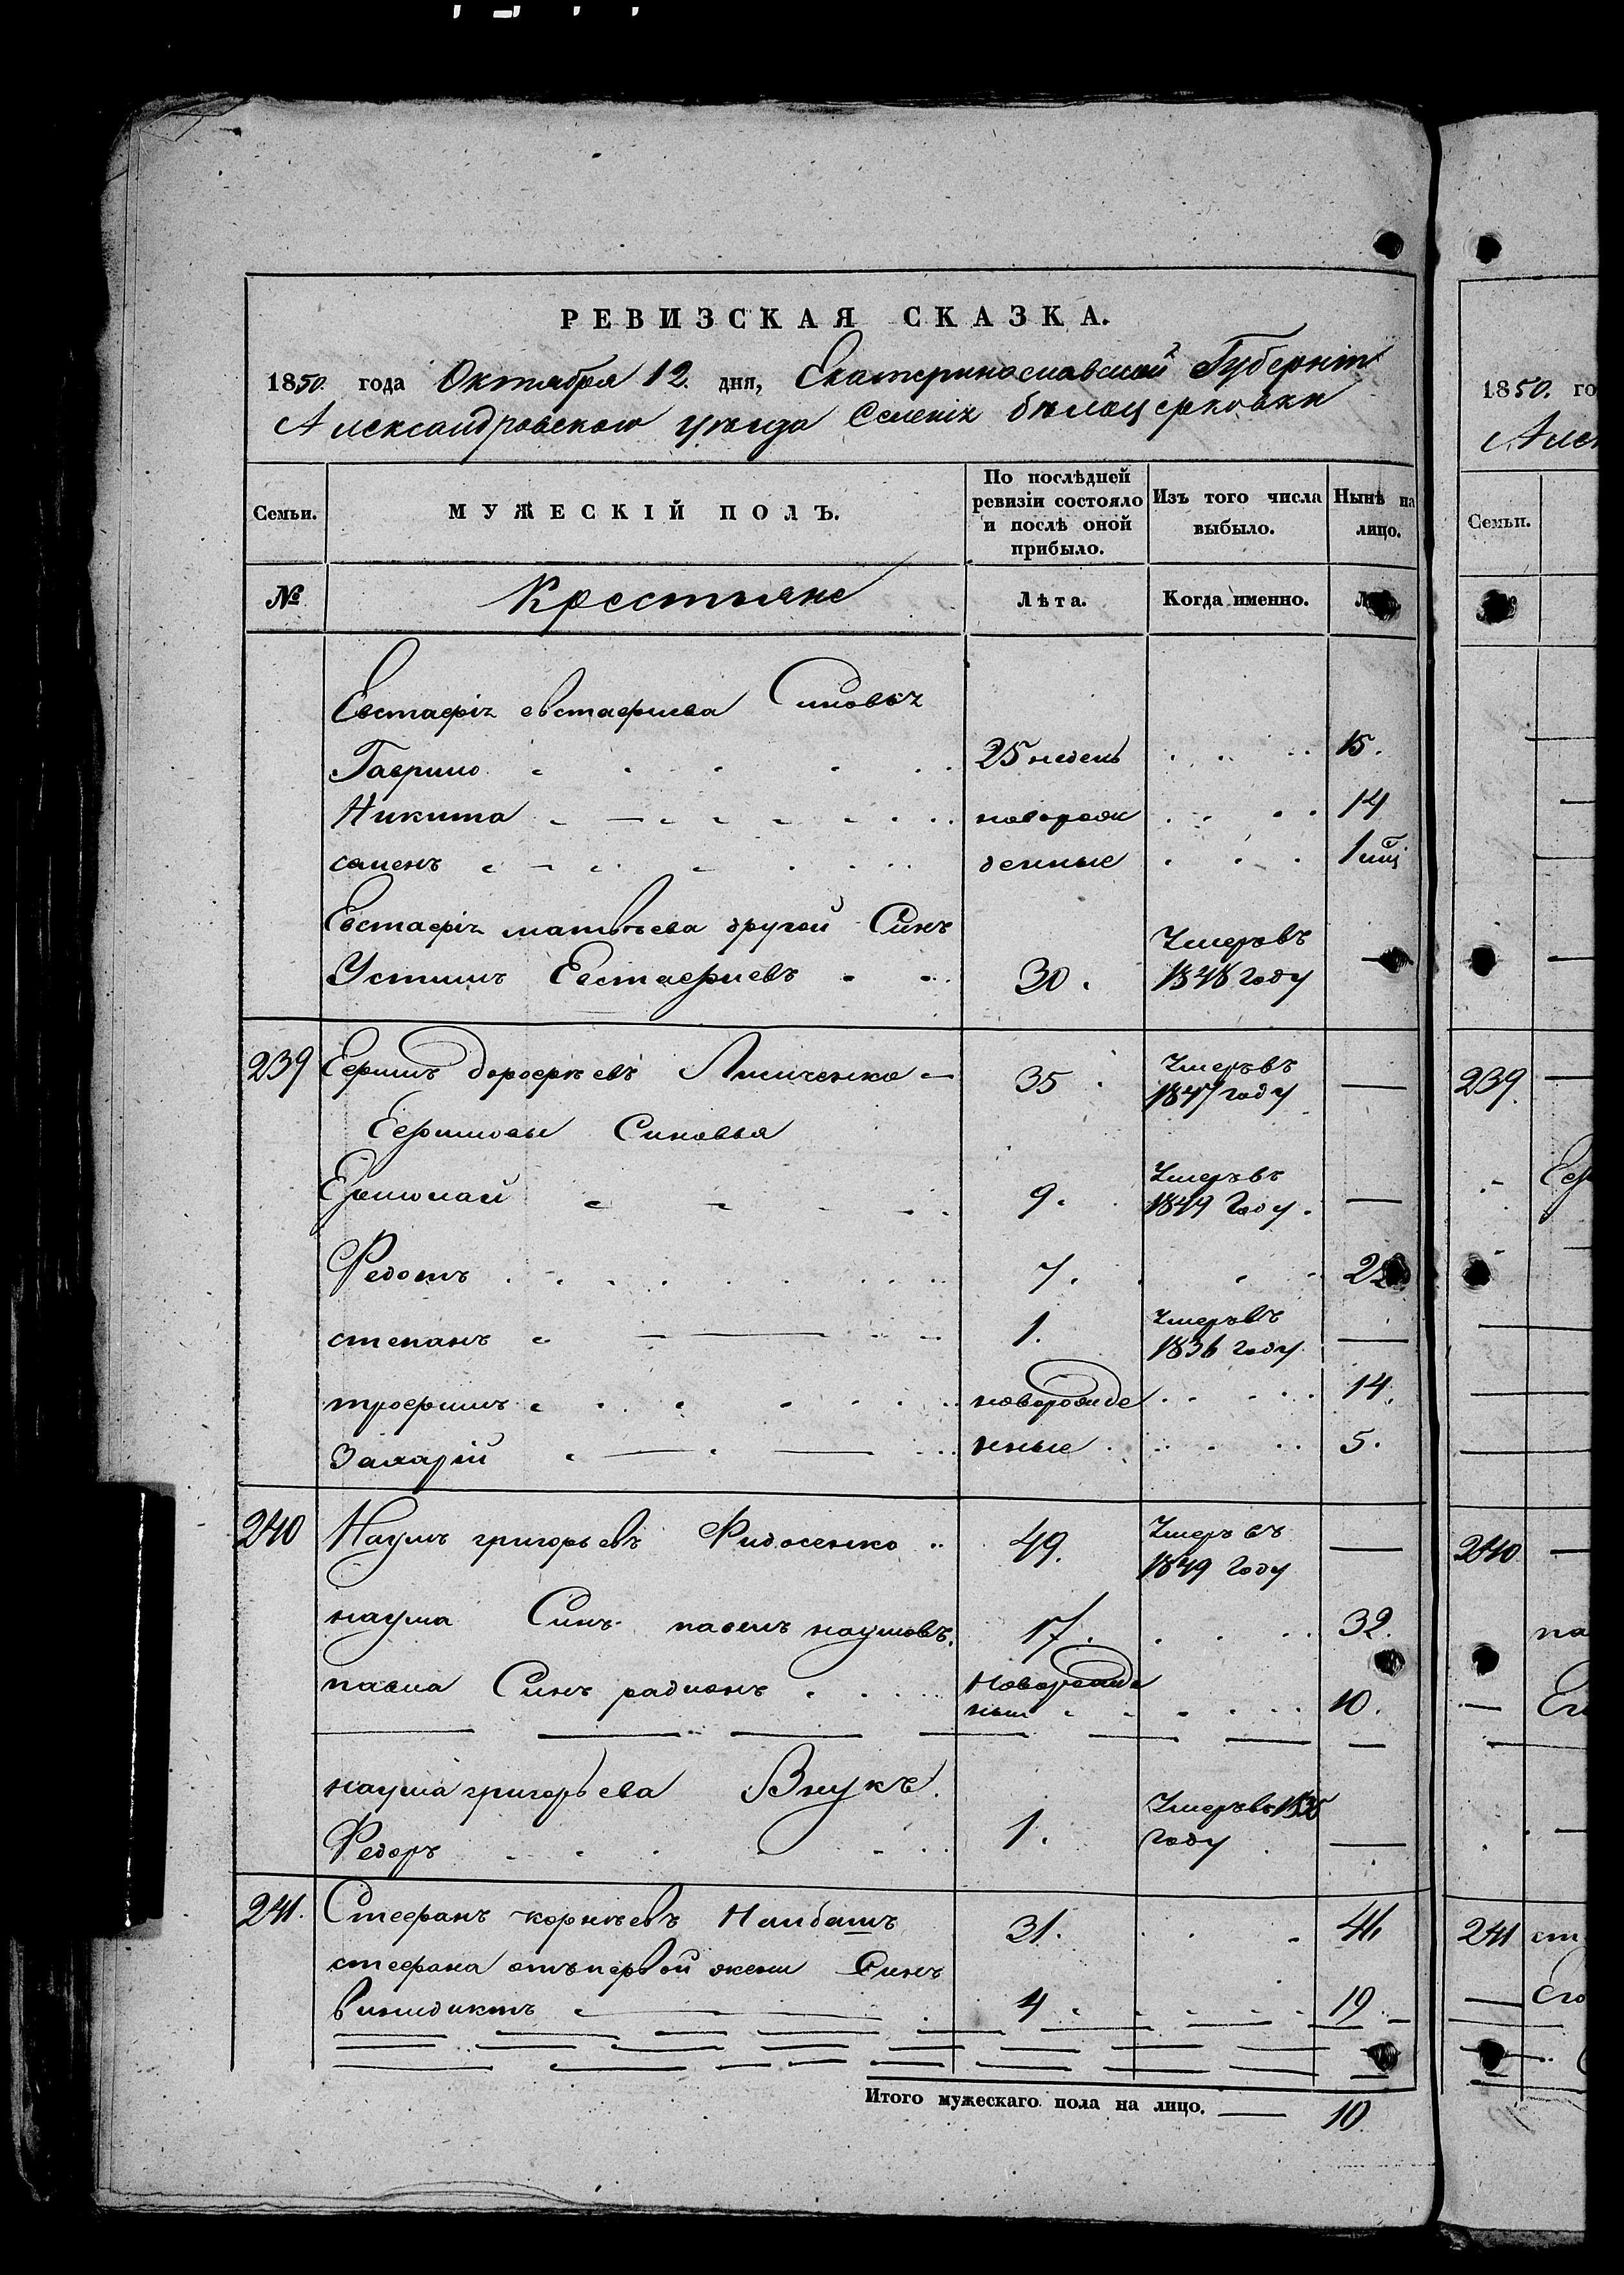 РЕВИЗСКАЯ СКАЗКА.
1850. года Октября 12. дня, Екатеринославской Губерніи
Александровского уѣзда Селенія бѣлоцерковки
Семьи. МУЖЕСКІЙ ПОЛЪ. По послѣдней ревизіи состояло и послѣ оной прибыло. Изъ того числа выбыло. Нынѣ на лицо.
№ Крестьяне Лѣта. Когда именно. Лѣта.
Евстафія евстафиева Синовья
Гаврило 25 недель 15.
Никита новорож 14
семенъ денные 1 мц
Евстафія матвѣева другой Синъ
Устимъ Евстафиевъ 30. Умеръ въ 1848 году —
239 Ефимъ дорофѣевъ Лисиченко 35 Умеръ въ 1847 году —
Ефимовы Синовья
Ермолай 9. Умеръ въ 1849 Году. —
Федотъ 7. 22
степанъ 1. Умеръ въ 1836 году —
трофимъ новорожде 14.
Захарій нные 5.
240 Наумъ григорьевъ Фидосенко 49. Умеръ въ 1849 Году —
наума Синъ павелъ наумовъ. 17. 32.
павла Синъ радионъ Новорожде
ный 10.
наума григорьева Внукъ.
Федоръ 1. Умеръ въ 1836 Году —
241. Стефанъ корнѣевъ Наибашъ 31. 46
стефана отъ первой жени Синъ
винидиктъ 4 19
Итого мужескаго пола на лицо. — 10
1850. го
Алек
Семьи.
239.
Еф
240
па
Ег
241 ст
Его